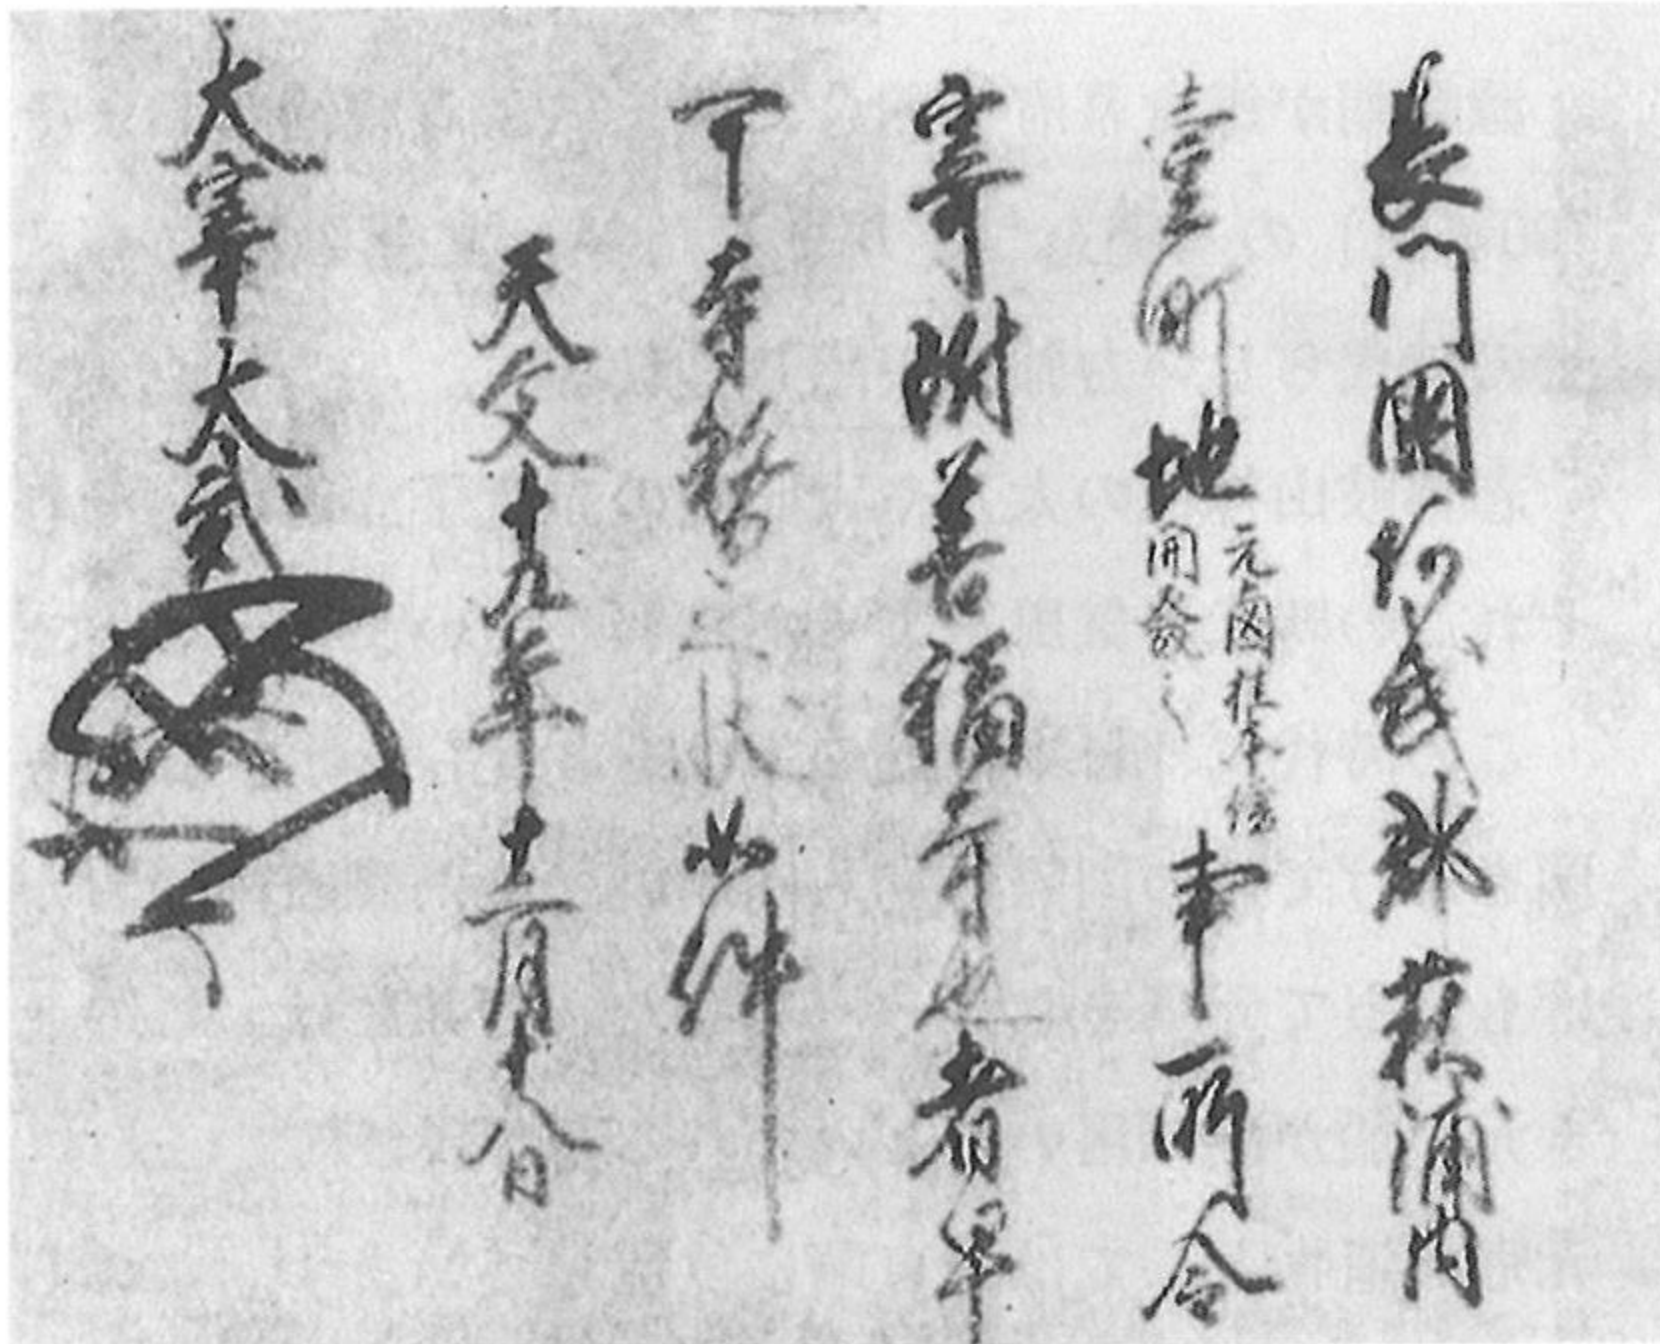 長門國阿武郡萩浦内
壹町地
元國根本給
開發之
事所令
寄附善福寺也者早
可寺務之状如件
天文十九年十二月十八日
大宰大貳